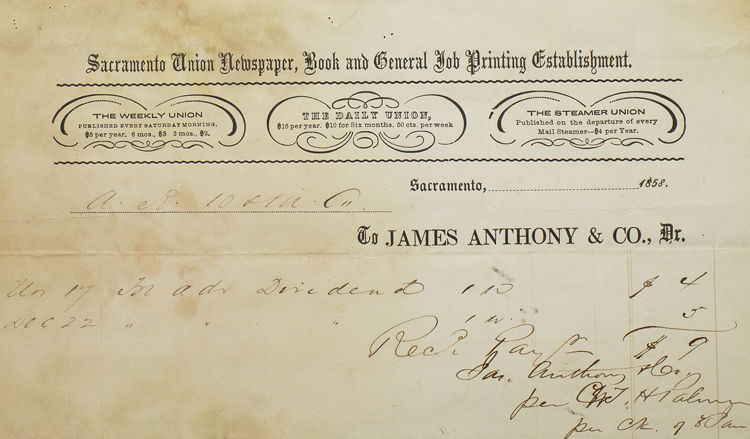 Sacramento Union Newspaper, Book and General Job Printing Establishment.
THE WEEKLY UNION
PUBLISHED EVERY SATURDAY MORNING,
$5 per year. 6 mos., $3 3 mos., $2.
THE DAILY UNION,
$16 per year. $10 for Six months. 50 cts. per week
THE STEAMER UNION
Published on the departure of every
Mail Steamer—$4 per Year.
Sacramento, 1858.
A. R.
To JAMES ANTHONY & CO., Dr.
Nov 17 To adv Dividend $ 4
Dec 22 " " " 5
Rec'd Pay't $ 9
Jas. Anthony & Co
per H Palmer
per Ck. of